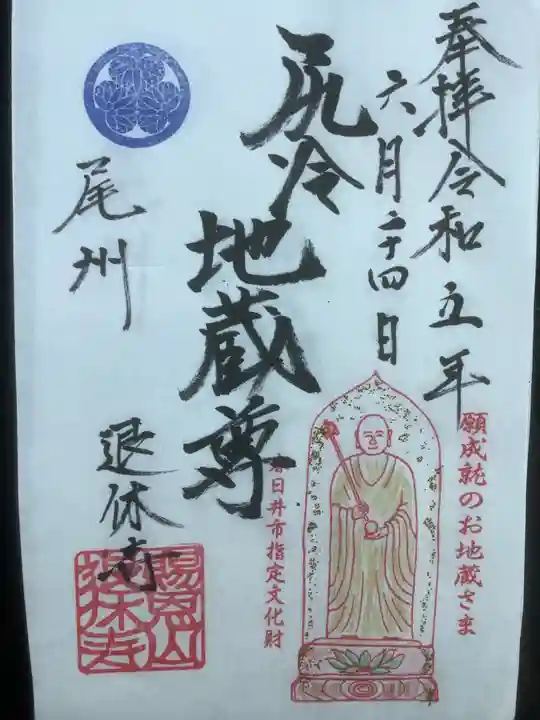 奉拝令和五年
六月二十四日
尻冷
地蔵尊
尾州
退休寺
願成就のお地蔵さま
春日井市指定文化財
賜恩山
退休寺